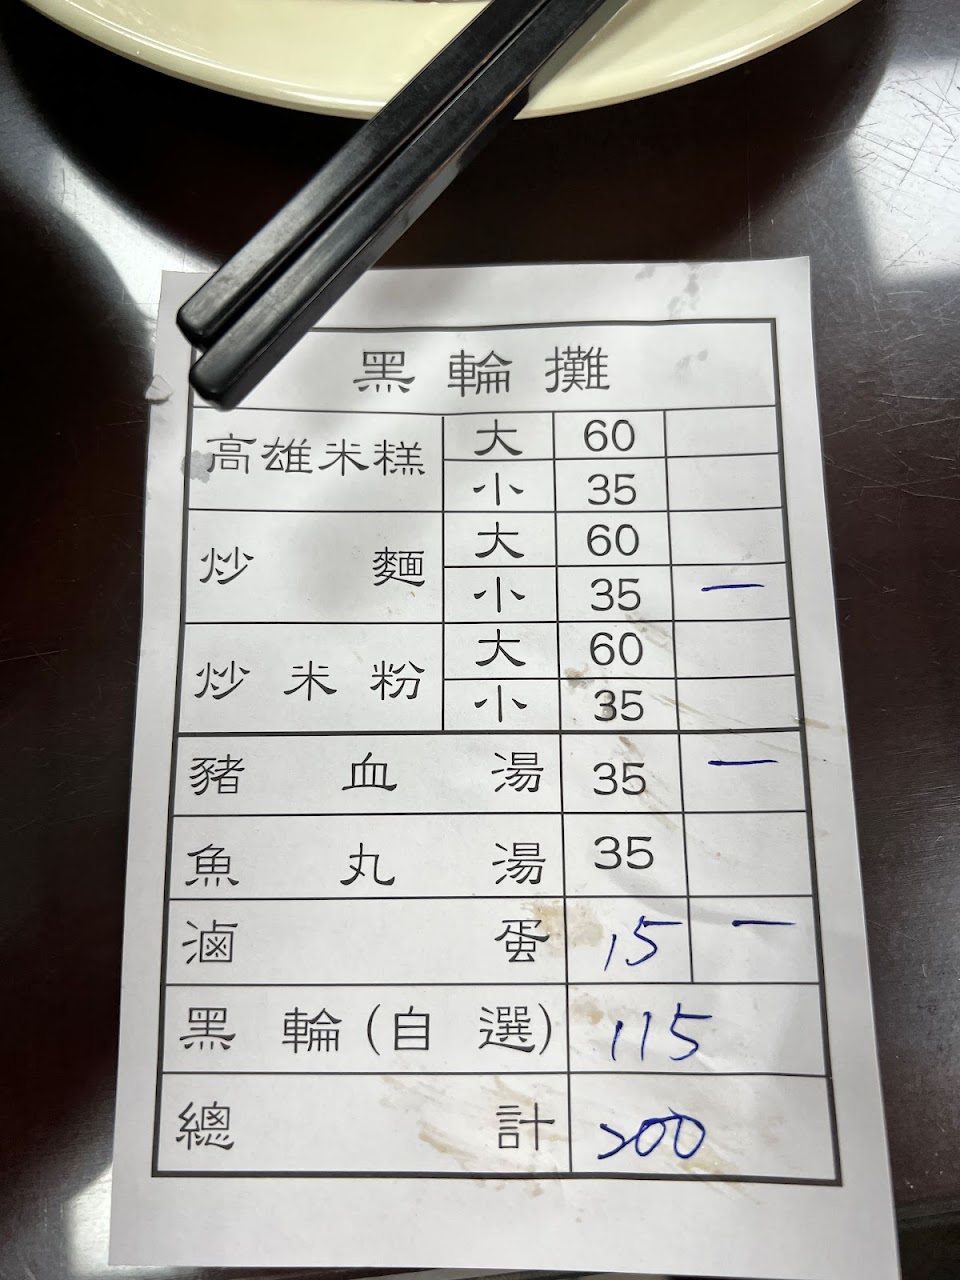 黑輪攤
高雄米糕 大 60
小 35
炒麵 大 60
小 35 一
炒米粉 大 60
小 35
豬血湯 35 一
魚丸湯 35
滷蛋 15 一
黑輪(自選) 115
總計 200